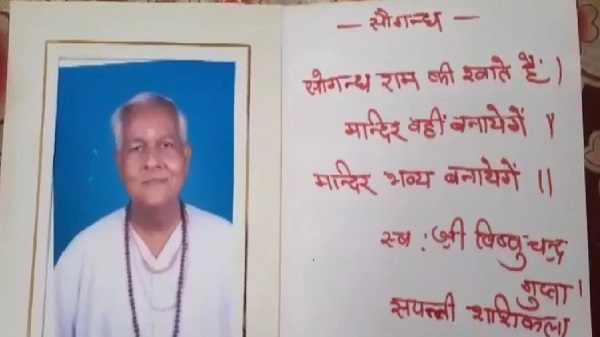 — सौगन्ध —
सौगन्ध राम की खाते हैं।
मन्दिर वहीं बनायेगें ।
मन्दिर भव्य बनायेगें ।।
स्व : श्री विष्णु चन्द्र
गुप्ता ।
सपत्नी शशिकला